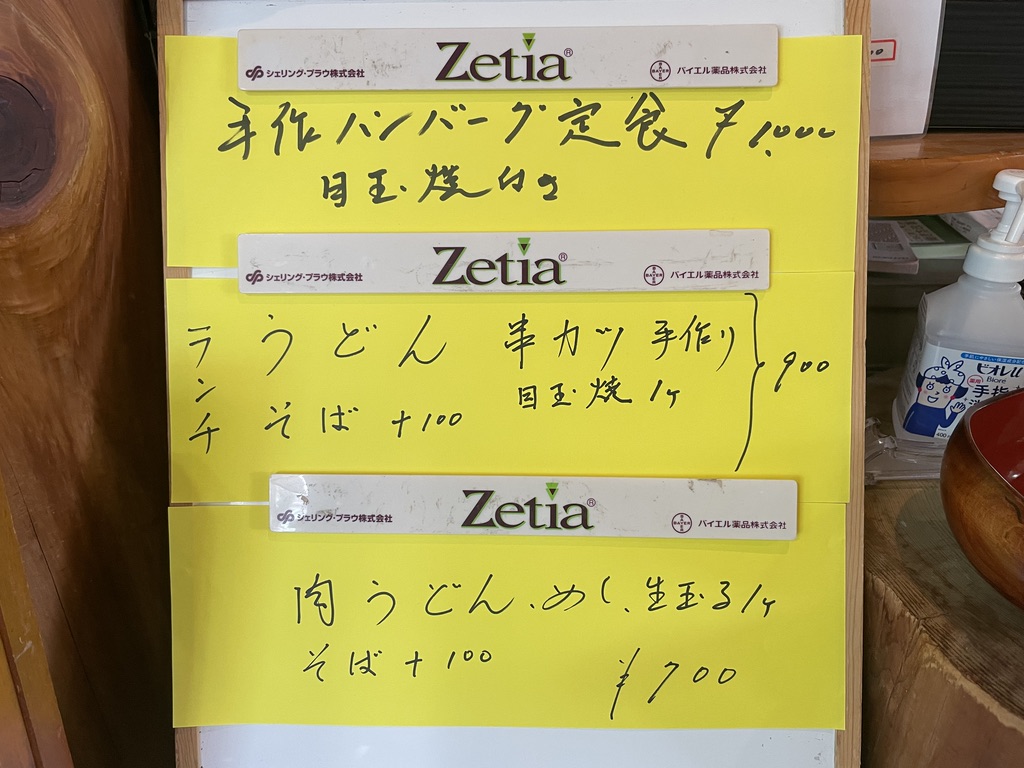 シェリング・プラウ株式会社 Zetia® BAYER バイエル薬品株式会社
手作ハンバーグ定食 ¥1,000
目玉焼付き
シェリング・プラウ株式会社 Zetia® BAYER バイエル薬品株式会社
ランチ
うどん 串カツ 手作り
目玉焼 1ヶ
そば +100
900
シェリング・プラウ株式会社 Zetia® BAYER バイエル薬品株式会社
肉うどん、めし、生玉る1ヶ
そば +100
¥700
ビオレu
Biore
手指